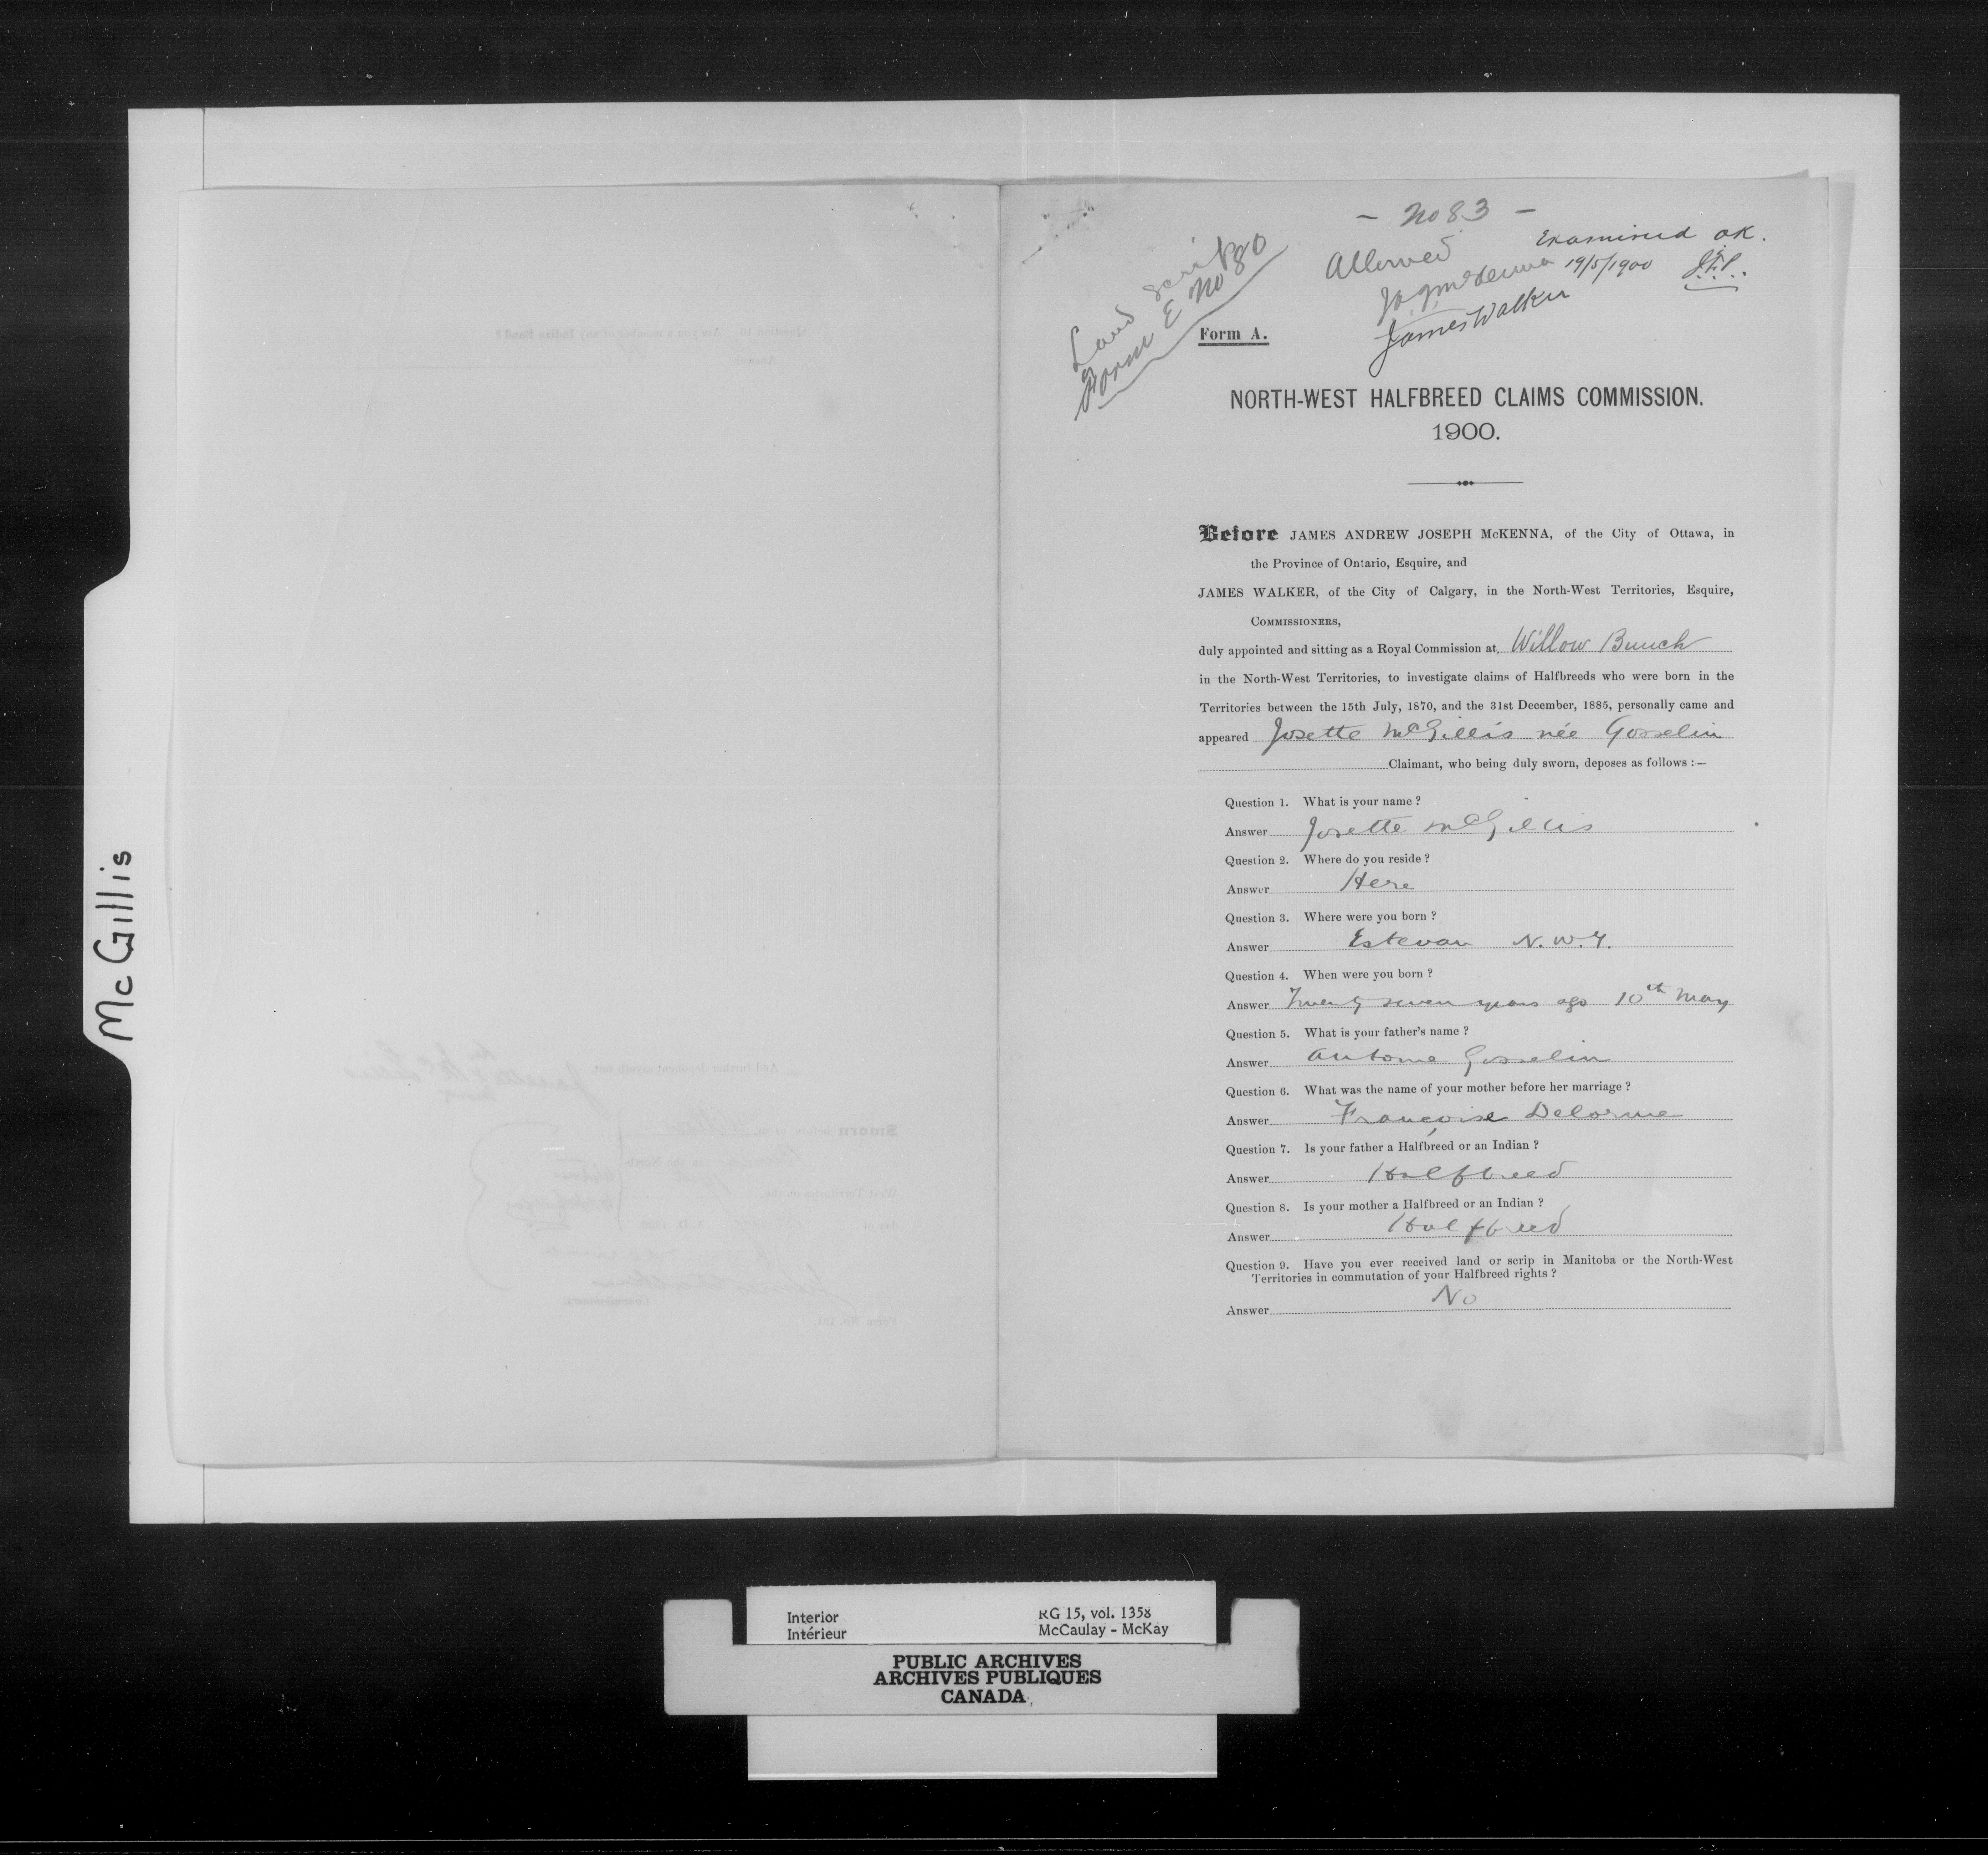 McGillis
- No 83 -
Allowed
Examined OK.
19/5/1900
J.A.J. McKenna
James Walker
Land scrip
Form E No 80
Form A.
NORTH-WEST HALFBREED CLAIMS COMMISSION.
1900.
Before JAMES ANDREW JOSEPH McKENNA, of the City of Ottawa, in
the Province of Ontario, Esquire, and
JAMES WALKER, of the City of Calgary, in the North-West Territories, Esquire,
COMMISSIONERS,
duly appointed and sitting as a Royal Commission at, Willow Bunch
in the North-West Territories, to investigate claims of Halfbreeds who were born in the
Territories between the 15th July, 1870, and the 31st December, 1885, personally came and
appeared Josette McGillis née Gosselin
Claimant, who being duly sworn, deposes as follows :—
Question 1. What is your name ?
Answer Josette McGillis
Question 2. Where do you reside ?
Answer Here
Question 3. Where were you born ?
Answer Estevan N.W.T.
Question 4. When were you born ?
Answer Twenty seven years ago 10th May
Question 5. What is your father's name ?
Answer Antoine Gosselin
Question 6. What was the name of your mother before her marriage ?
Answer Françoise Delorme
Question 7. Is your father a Halfbreed or an Indian ?
Answer Halfbreed
Question 8. Is your mother a Halfbreed or an Indian ?
Answer Halfbreed
Question 9. Have you ever received land or scrip in Manitoba or the North-West
Territories in commutation of your Halfbreed rights ?
Answer No
Interior RG 15, vol. 1358
Intérieur McCaulay - McKay
PUBLIC ARCHIVES
ARCHIVES PUBLIQUES
CANADA